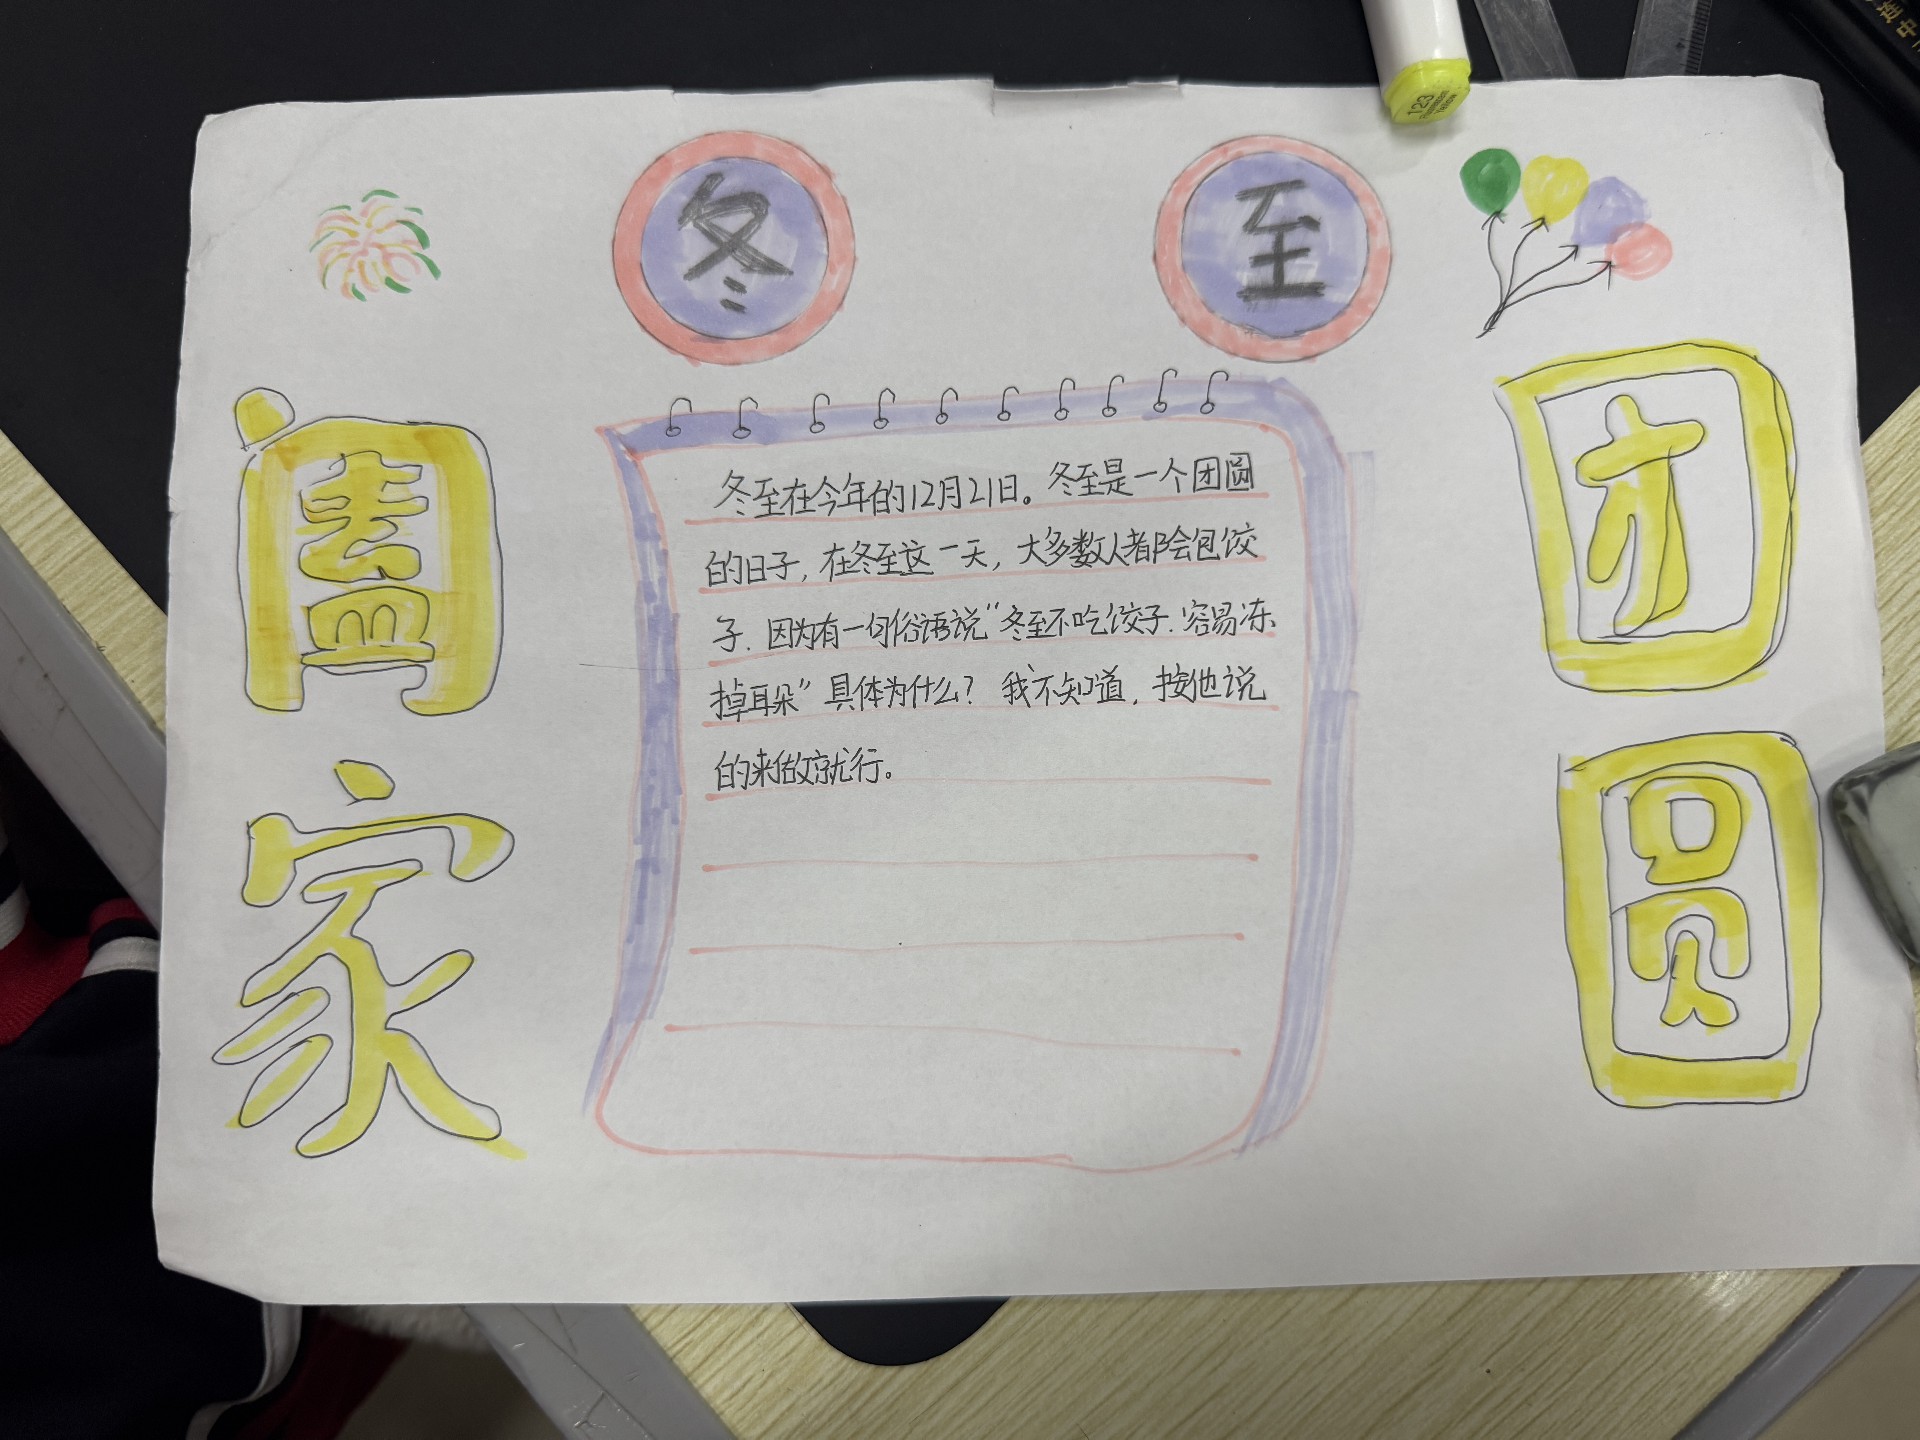 冬至
阖家
团圆
冬至在今年的12月21日。冬至是一个团圆
的日子,在冬至这一天,大多数人都会包饺
子.因为有一句俗语说“冬至不吃饺子.容易冻
掉耳朵”具体为什么? 我不知道,按他说
的来做就行。
123